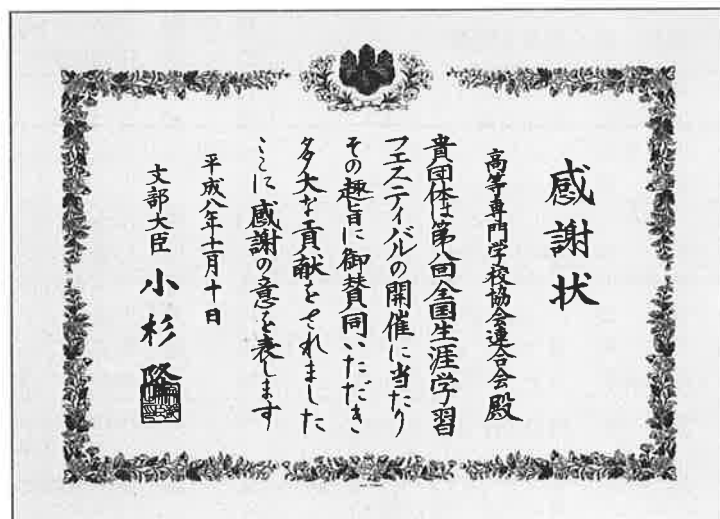 感謝状
高等専門学校協会連合会殿
貴団体は第八回全国生涯学習
フェスティバルの開催に当たり
その趣旨に御賛同いただき
多大な貢献をされました
ここに感謝の意を表します
平成八年十一月十日
文部大臣 小杉隆